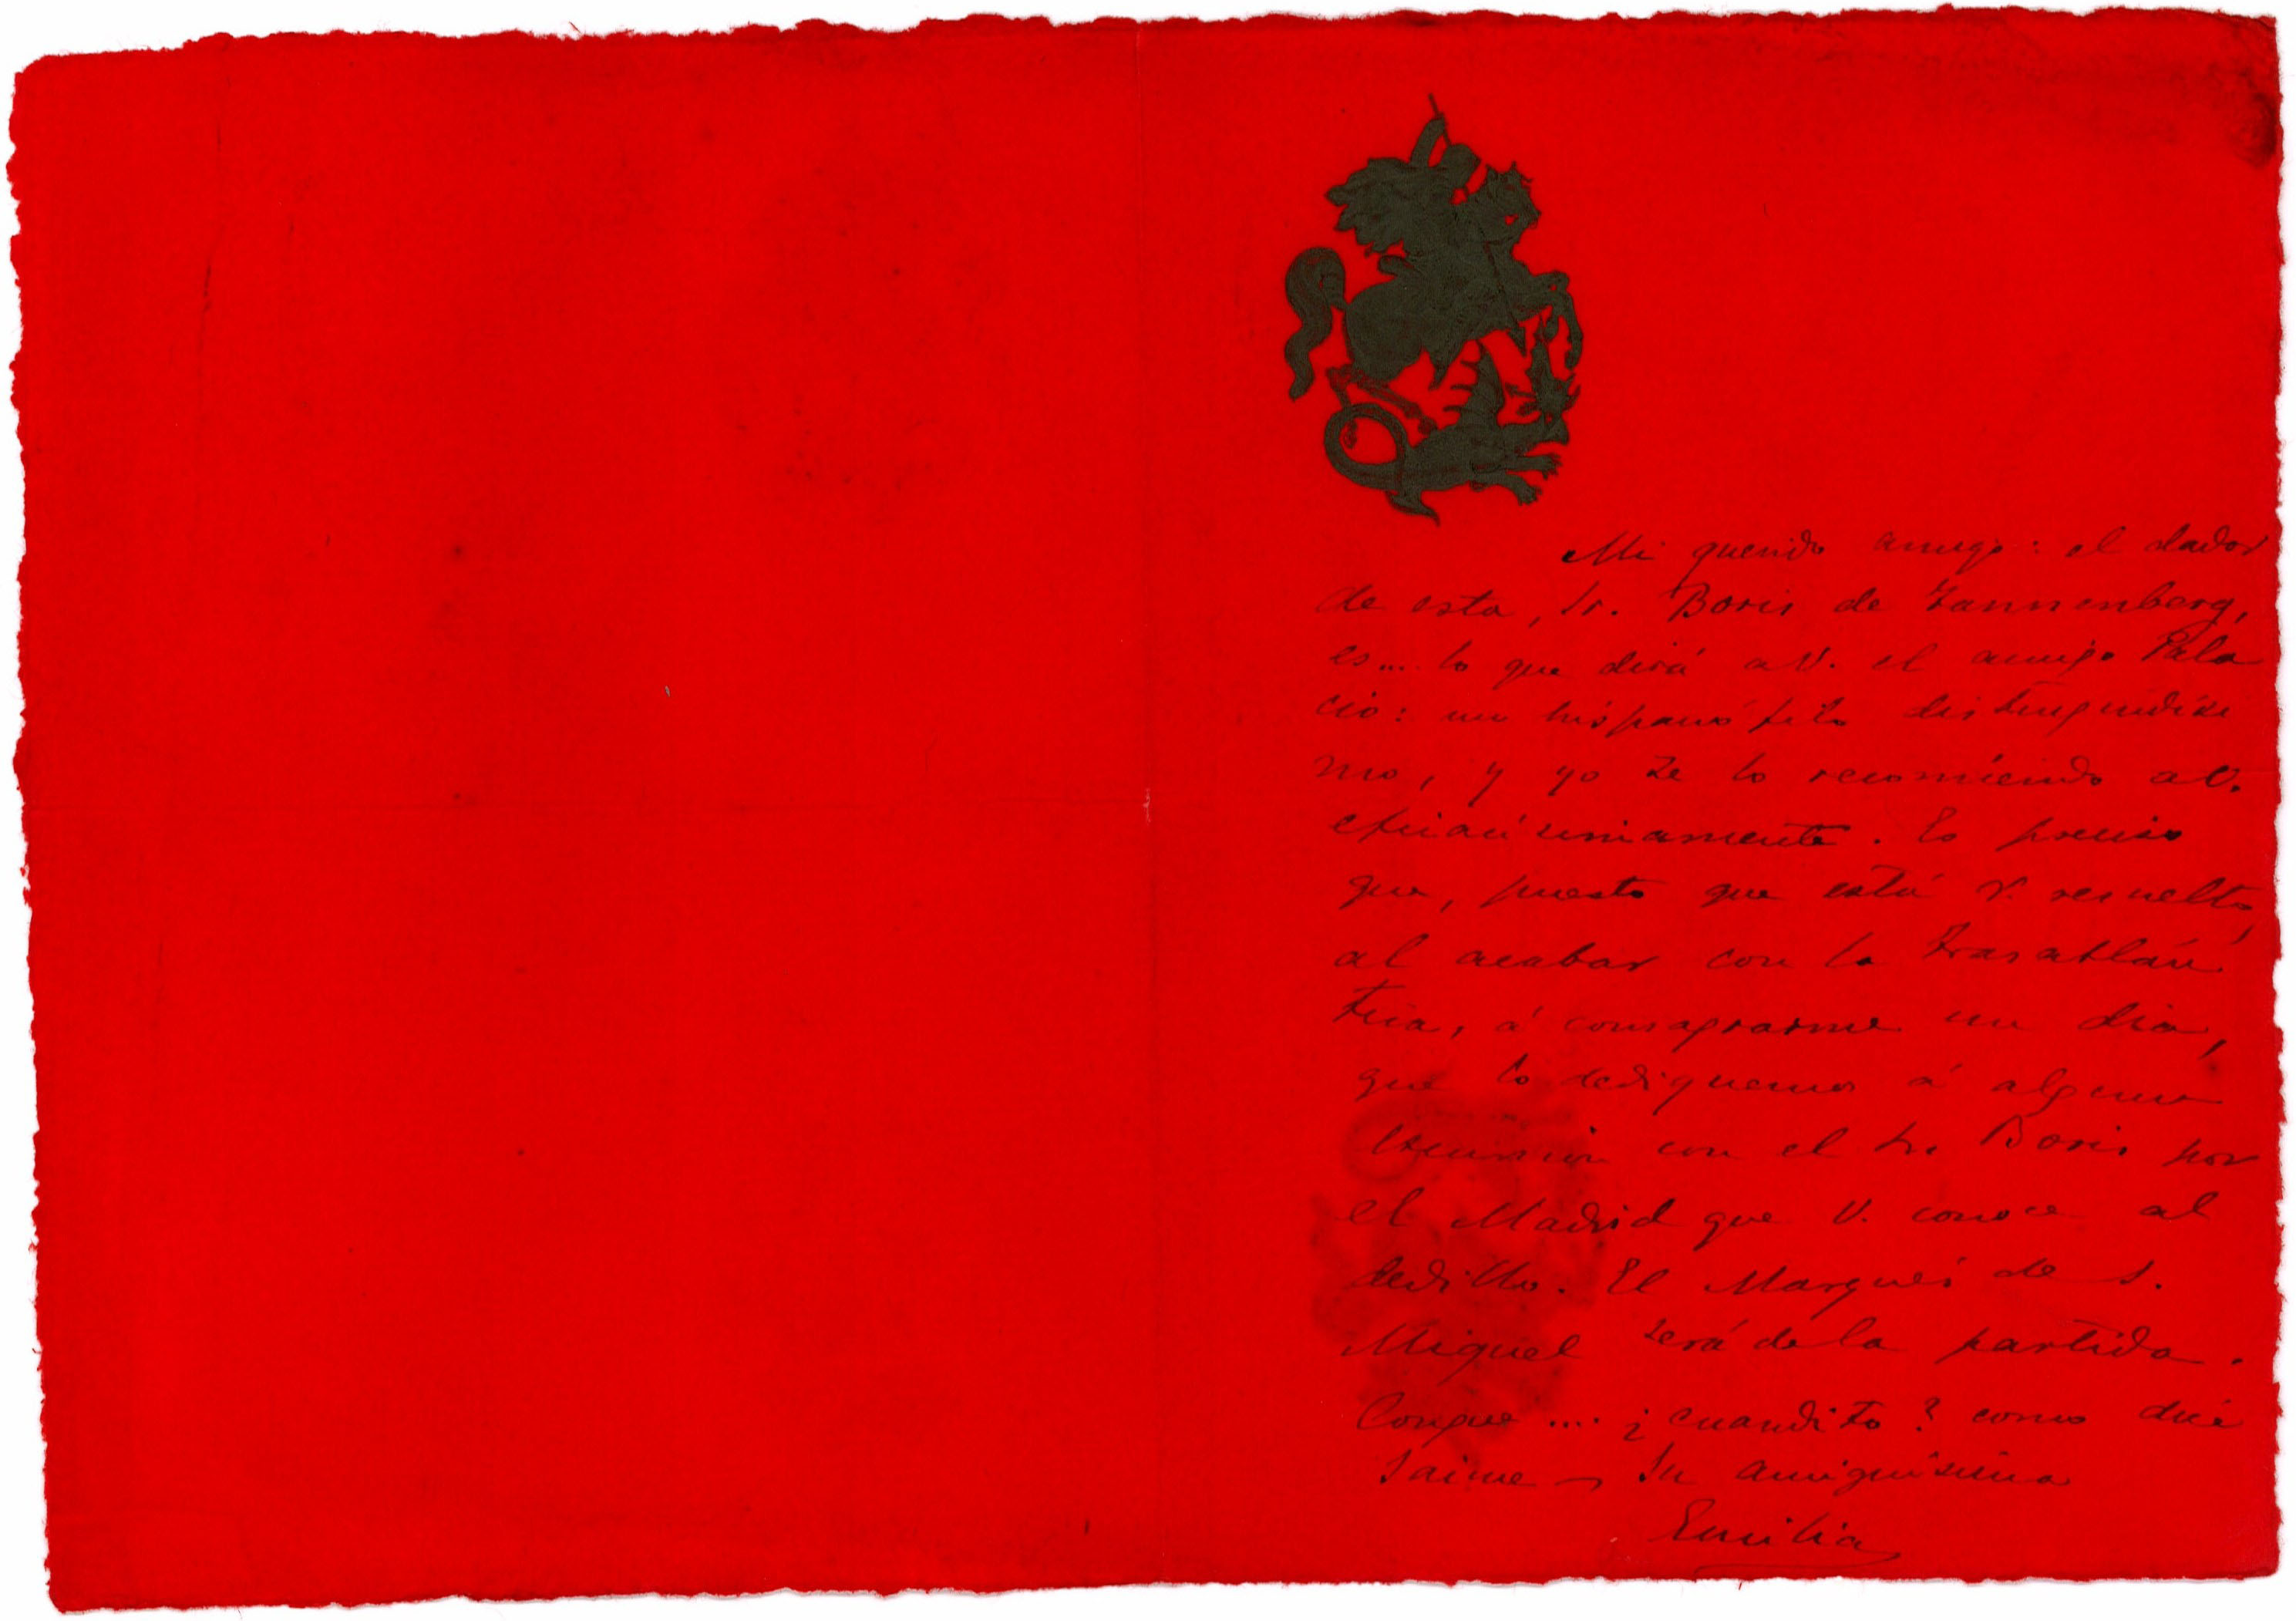 Mi querido amigo: el dador
de esta, Sr. Boris de Tannenberg,
es... lo que dirá a V. el amigo Pala
cio: un hispanófilo distinguidísi
mo, y yo se lo recomiendo a V.
eficacísimamente. Es preciso
que, puesto que está V. resuelto,
al acabar con la Trasatlán
tica, á consagrarme un dia,
que lo dediquemos á alguna
excursion con el Sr. Boris por
el Madrid que V. conoce al
dedillo. El Marqués de S.
Miguel será de la partida.
Conque .... ¿cuandito? como dice
Jaime – Su amiguísima
Emilia